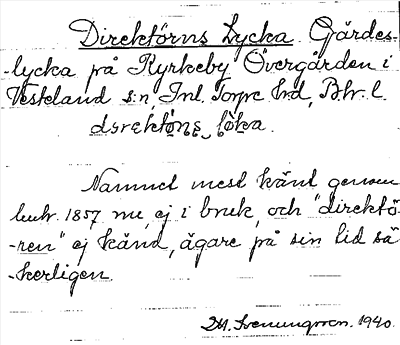 Direktörns Lycka. Gärdes-
-lycka på Kyrkeby Övergården i
Veskeland s:n, Inl. Torpe hd, Bhr. l.
dsrektöns löka.
Namnet mest känt genom
butr. 1857 nu, ej i bruk, och "direktö-
-ren" ej känd, ägare på sin tid sä
-kerligen.
M. Svenungsson. 1940.